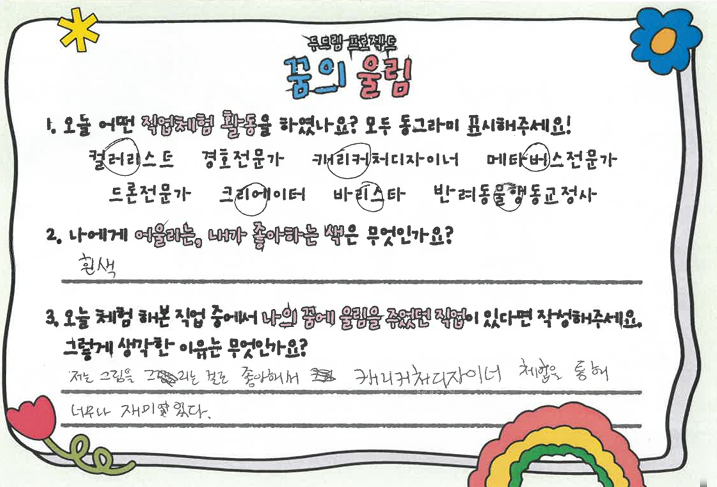 두드림 프로젝트
꿈의 울림
1. 오늘 어떤 직업체험 활동을 하였나요? 모두 동그라미 표시해주세요!
컬러리스트 경호전문가 캐리커처디자이너 메타버스전문가
드론전문가 크리에이터 바리스타 반려동물행동교정사
2. 나에게 어울리는, 내가 좋아하는 색은 무엇인가요?
흰색
3. 오늘 체험 해본 직업 중에서 나의 꿈에 울림을 주었던 직업이 있다면 작성해주세요.
그렇게 생각한 이유는 무엇인가요?
저는 그림을 그리는 걸로 좋아해서 캐리커처디자이너 체험을 통해
너무나 재미있었다.